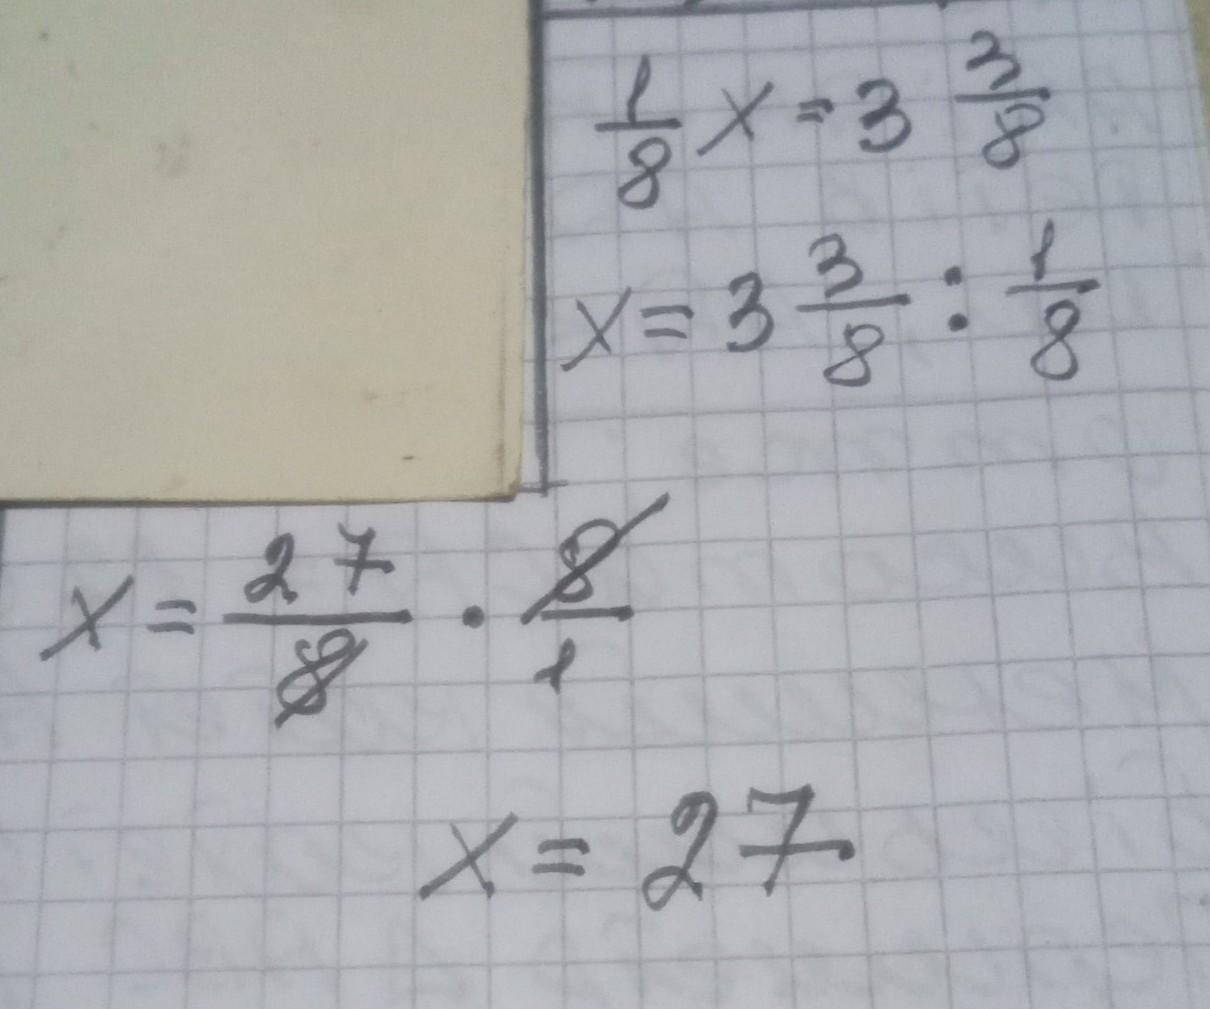 1/8 x = 3 3/8
x = 3 3/8 : 1/8
x = 27/8 · 8/1
x = 27.